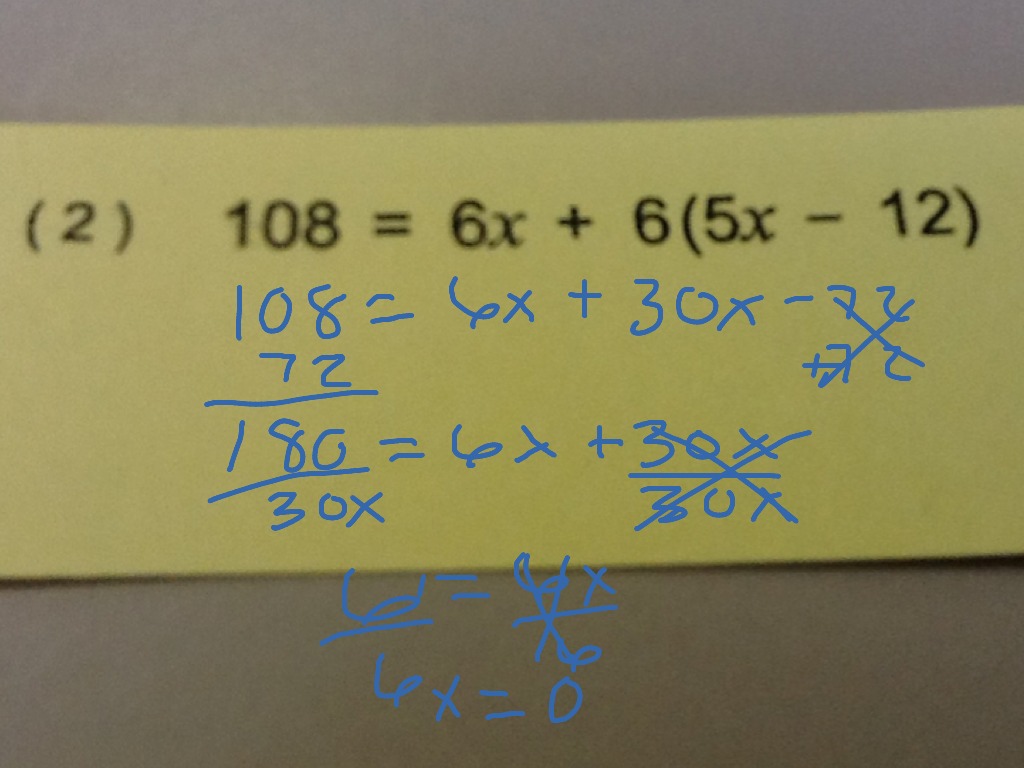 (2) 108 = 6x + 6(5x − 12)
108 = 6x + 30x - 72
72 +72
180 = 6x + 30x
30x 30x
6 = 6x
6
6x = 0